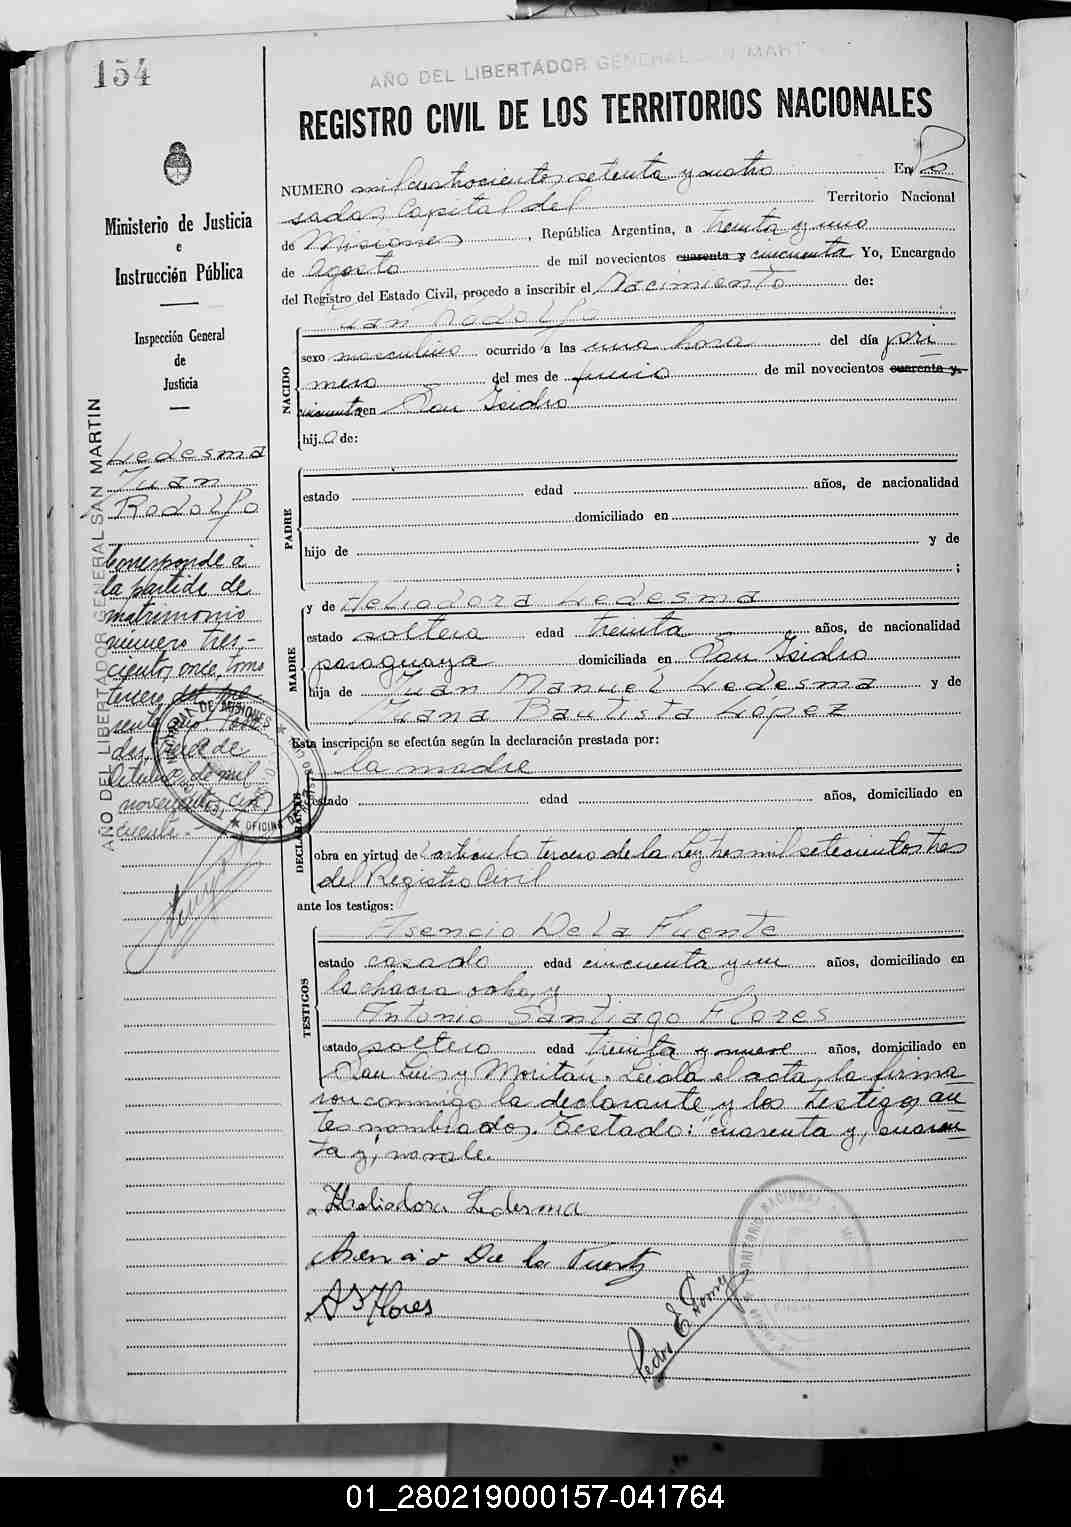 154
AÑO DEL LIBERTADOR GENERAL SAN MARTIN
REGISTRO CIVIL DE LOS TERRITORIOS NACIONALES
Ministerio de Justicia
e
Instrucción Pública
Inspección General
de
Justicia
AÑO DEL LIBERTADOR GENERAL SAN MARTIN
Ledesma
Juan
Rodolfo
Corresponde a
la partida de
matrimonio
número tres-
cientos once, tomo
tercero del pre
sente año. Posa
das, trece de
Octubre de mil
novecientos cin
cuenta.-
NUMERO mil cuatrocientos setenta y cuatro En Po
sadas, Capital del Territorio Nacional
de Misiones, República Argentina, a treinta y uno
de agosto de mil novecientos cuarenta y cincuenta Yo, Encargado
del Registro del Estado Civil, procedo a inscribir el Nacimiento de:
Juan Rodolfo
NACIDO
sexo masculino ocurrido a las una hora del día pri
mero del mes de junio de mil novecientos cuarenta y
cincuenta en San Isidro
hijo de:
PADRE
estado edad años, de nacionalidad
domiciliado en
hijo de y de
;
MADRE
y de Heliodora Ledesma
estado soltera edad treinta años, de nacionalidad
paraguaya domiciliada en San Isidro
hija de Juan Manuel Ledesma y de
Juana Bautista López
Esta inscripción se efectúa según la declaración prestada por:
DECLARANTE
la madre
estado edad años, domiciliado en
obra en virtud del artículo tercero de la Ley tres mil setecientos tres
del Registro Civil
ante los testigos:
TESTIGOS
Asencio De La Fuente
estado casado edad cincuenta y un años, domiciliado en
la chacra ocho, y
Antonio Santiago Flores
estado soltero edad treinta y nueve años, domiciliado en
San Luis y Moritán. Leída el acta, la firma
ron conmigo la declarante y los testigos an
tes nombrados. Testado: "cuarenta y, cuaren
ta y", no vale.
Heliodora Ledesma
Asencio De la Fuente
A S Flores
Pedro E. Gomez
01_280219000157-041764